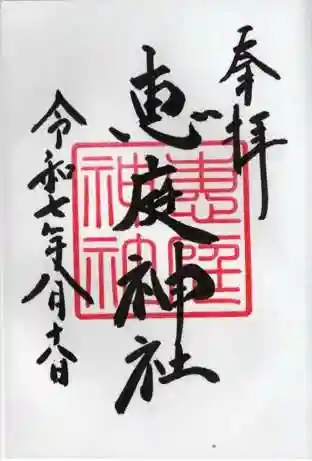 奉拝
恵庭神社
令和七年八月十八日
惠庭
神社